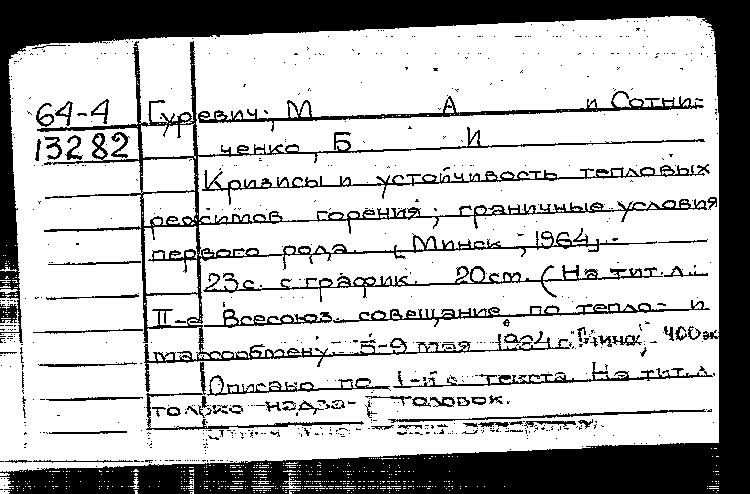 64-4 Гуревич, М А и Сотни-
13282 ченко, Б И
Кризисы и устойчивость тепловых
режимов горения; граничные условия
первого рода. [Минск, 1964] -
23с. с график. 20см. (На тит. л.:
II-е Всесоюз. совещание по тепло- и
массообмену. 5-9 мая 1964 г. Минск). 400 эк
Описано по 1-й с. текста. На тит. л.
только надза- [головок.